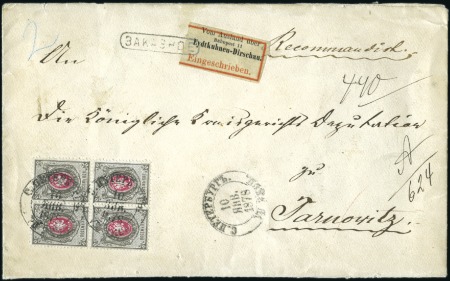 2
An
ЗАКАЗНОЕ
Vom Ausland über
Bahnpost 11
Eydtkuhnen-Dirschau.
Eingeschrieben.
Recommandirt.
440
Die Königliche Kreisgerichts Deputation
zu
Tarnowitz
A
624
С. ПЕТЕРБУРГЪ
10
ЯНВ.
1878